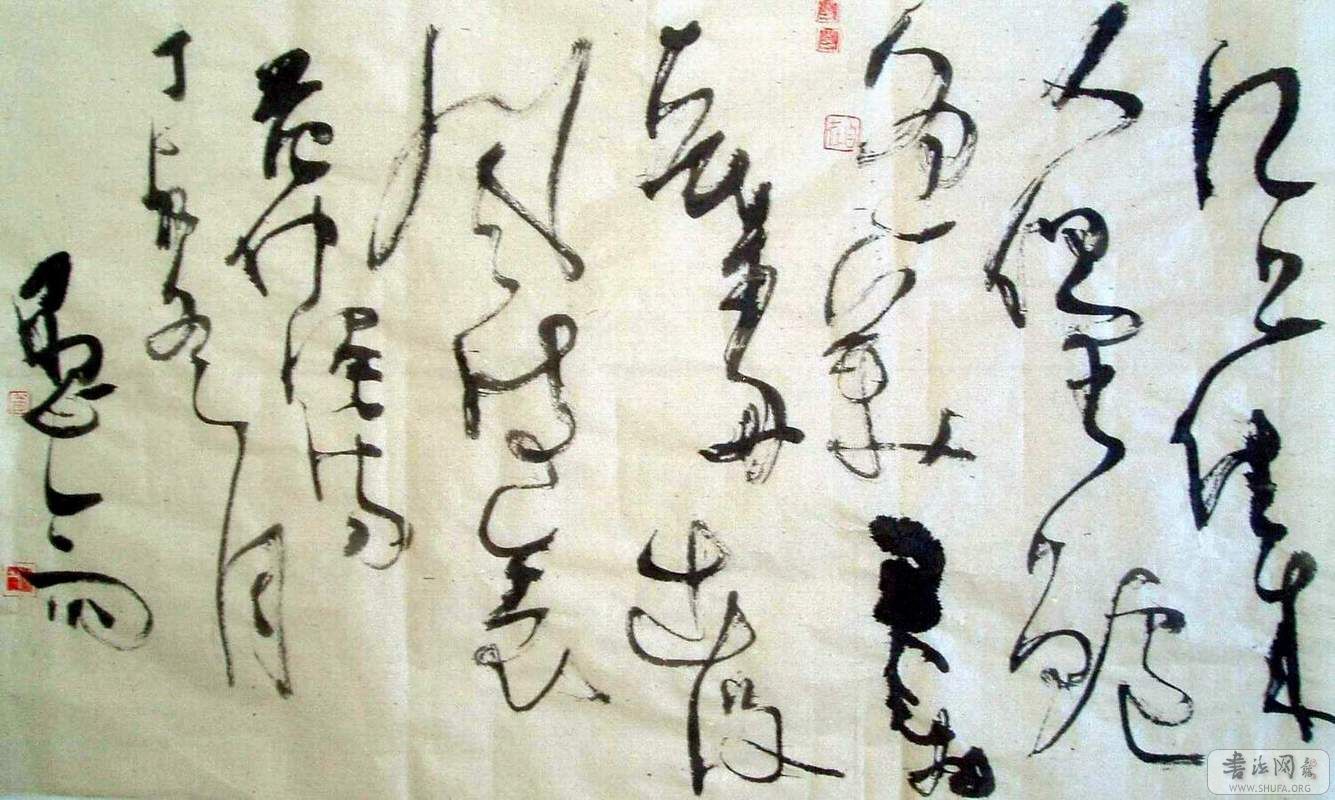 江上往来
人但爱鲈
鱼美君看
一叶舟出没
风波里
范仲淹诗
丁亥冬月
书法网
WWW.SHUFA.ORG